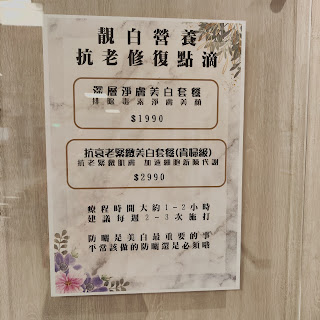 靚白營養
抗老修復點滴
深層淨膚美白套餐
排除毒素淨膚美顏
$1990
抗衰老緊緻美白套餐(貴婦級)
抗老緊緻肌膚 加速細胞新陳代謝
$2990
療程時間大約1-2小時
建議每週2-3次施打
防曬是美白最重要的事
平常該做的防曬還是必須唷